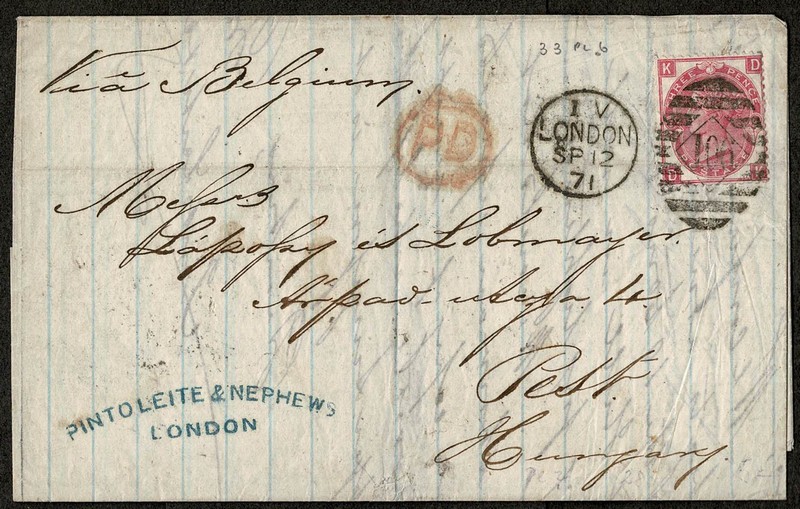 33 Pl 6
Viā Belgium.
PD
1 V
LONDON
SP 12
71
K D
THREE PENCE
106
D
Messrs
Láposy és Lobmayer.
Árpad-utcza 4.
Pest.
Hungary.
PINTO LEITE & NEPHEWS
LONDON